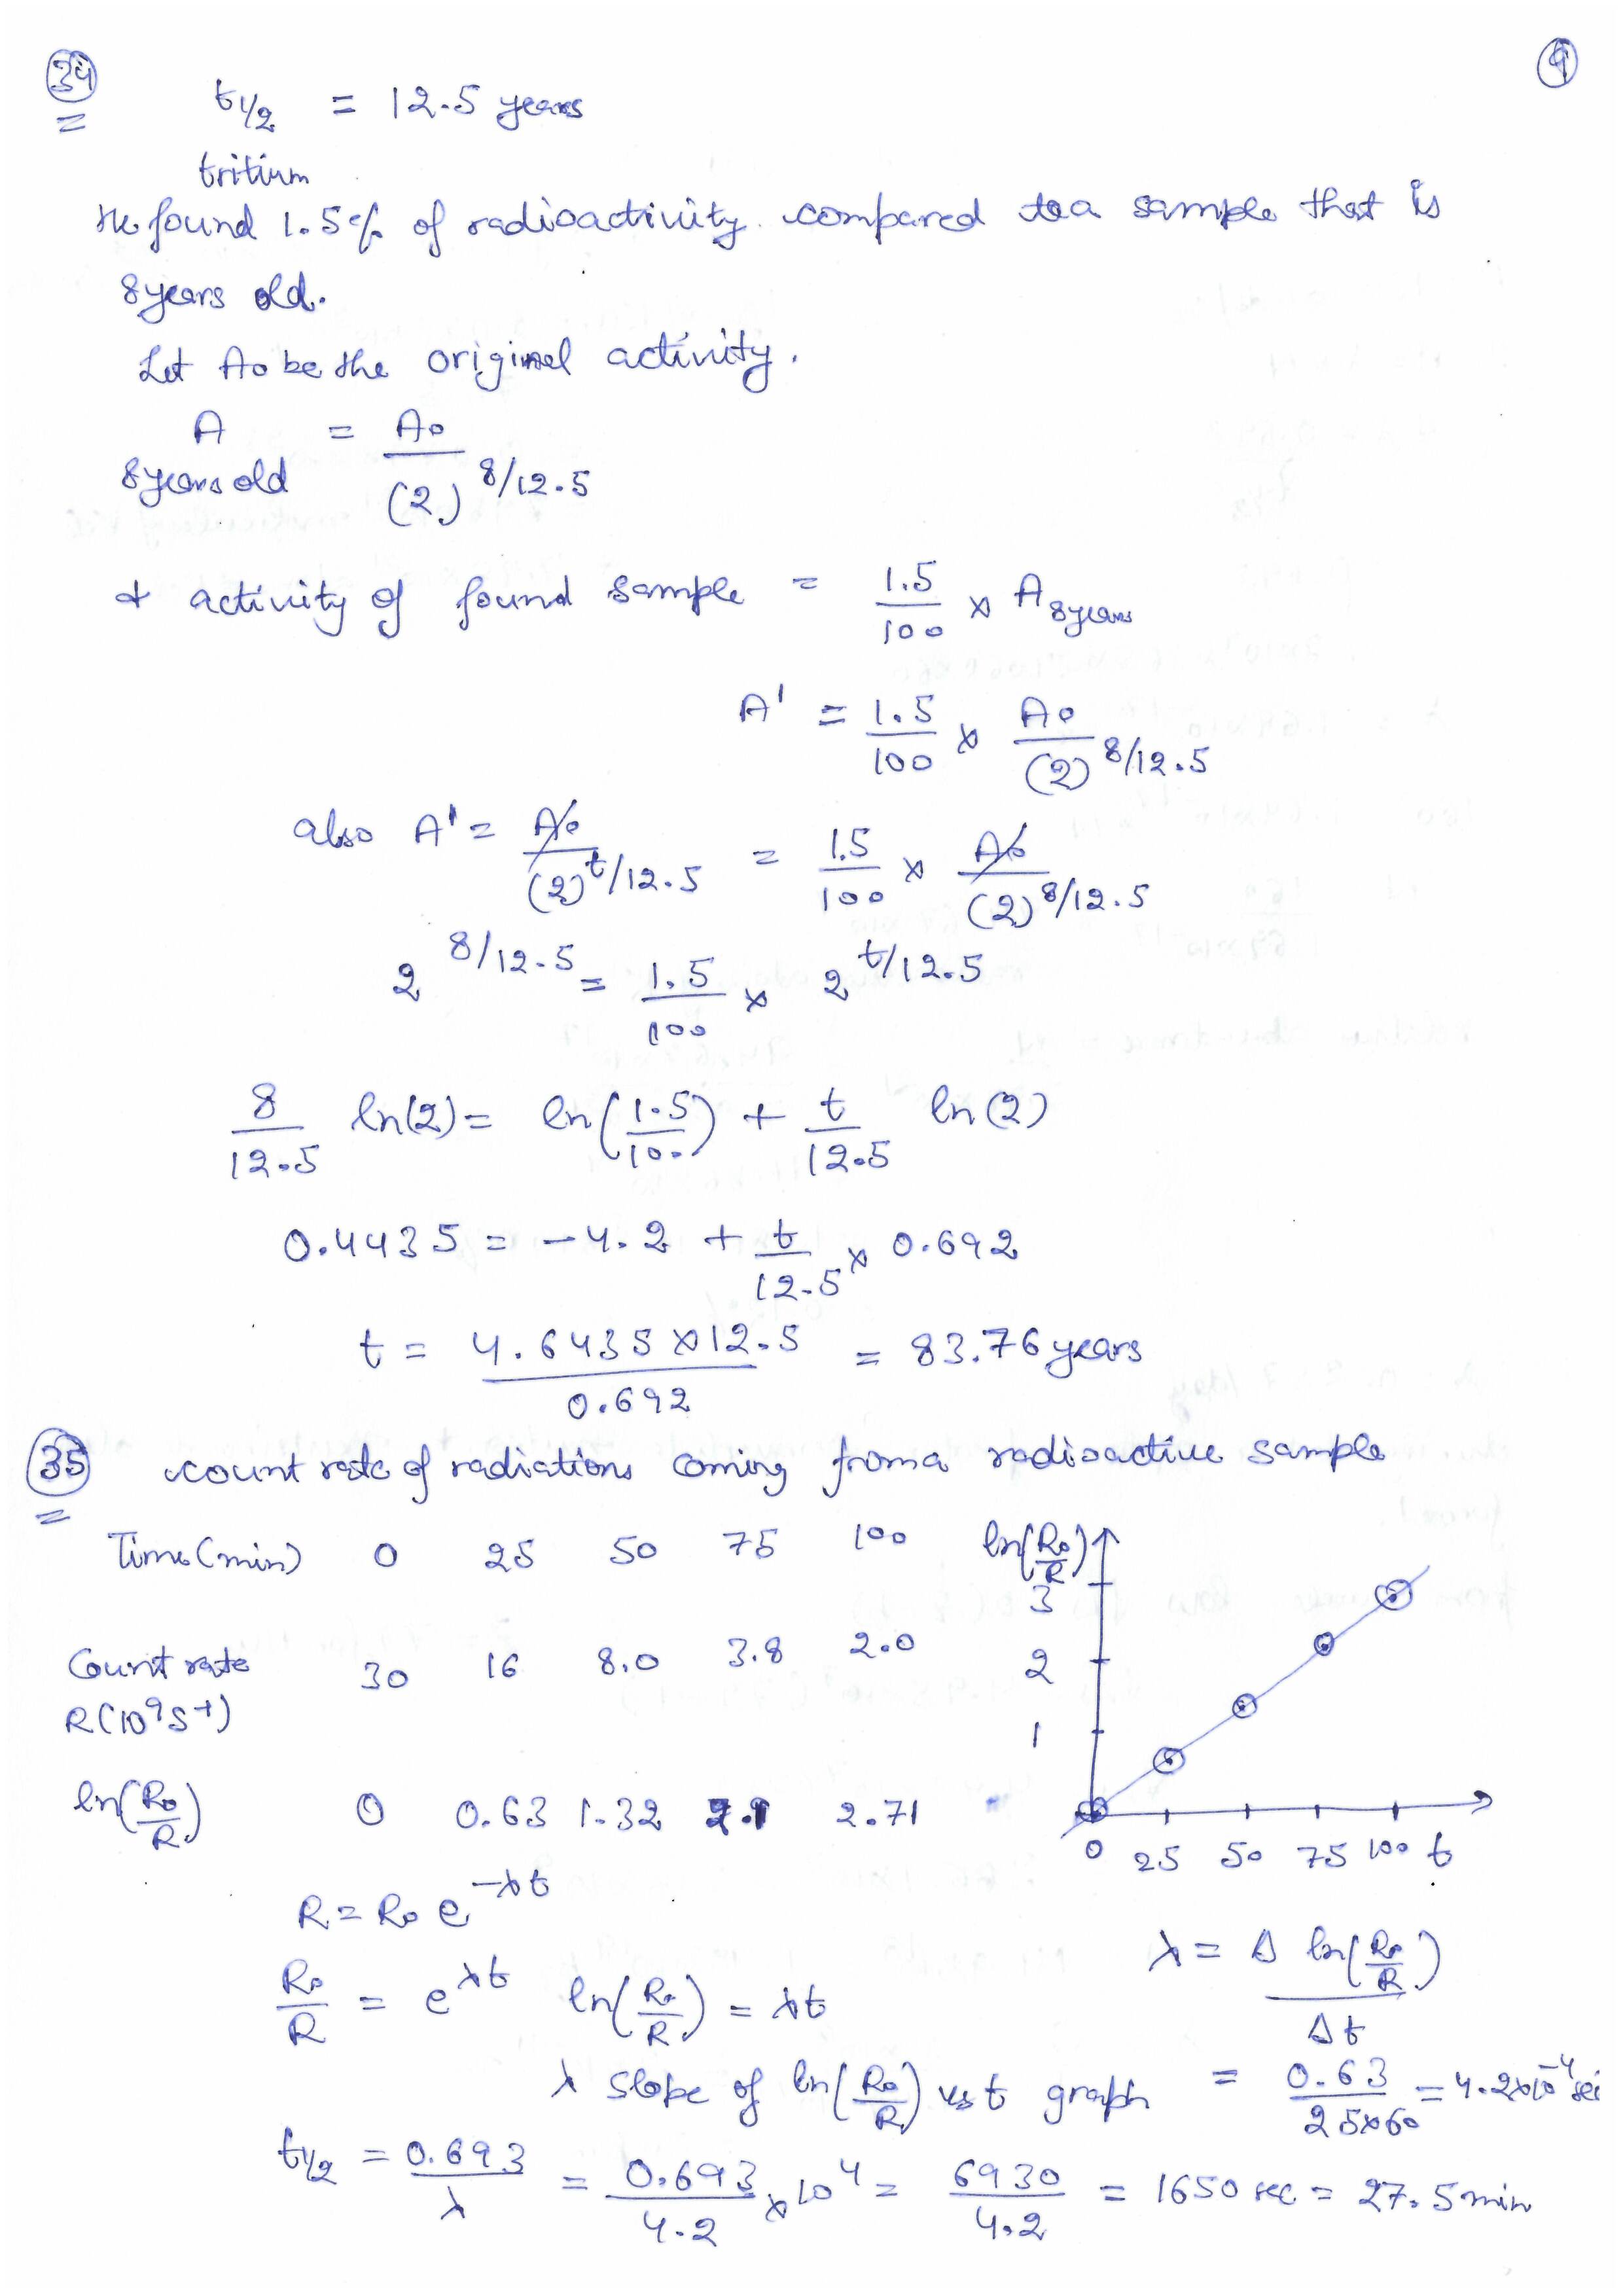 34
9
t1/2 = 12.5 years
tritium
He found 1.5% of radioactivity compared to a sample that is
8 years old.
Let A0 be the original activity.
A = A0
8 years old (2) 8/12.5
& activity of found sample = 1.5/100 × A 8 years
A' = 1.5/100 × A0/(2) 8/12.5
also A' = A0/(2) t/12.5 = 1.5/100 × A0/(2) 8/12.5
2 8/12.5 = 1.5/100 × 2 t/12.5
8/12.5 ln(2) = ln(1.5/100) + t/12.5 ln(2)
0.4435 = -4.2 + t/12.5 × 0.692
t = 4.6435 × 12.5/0.692 = 83.76 years
35 count rate of radiations coming from a radioactive sample
Time (min) 0 25 50 75 100
Count rate 30 16 8.0 3.8 2.0
R(10^9 s-1)
ln(R0/R) 0 0.63 1.32 2.1 2.71
ln(R0/R)
3
2
1
0 25 50 75 100 t
R = R0 e -λt
R0/R = e λt ln(R0/R) = λt
λ = Δ ln(R0/R)/Δt
λ slope of ln(R0/R) vs t graph = 0.63/25×60 = 4.2×10-4 sec
t1/2 = 0.693/λ = 0.693/4.2 × 10 4 = 6930/4.2 = 1650 sec = 27.5 min